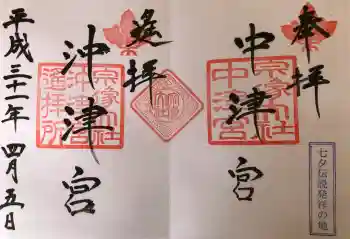 奉拝
中津宮
宗像大社
中津宮
七夕伝説発祥の地
遙拝
沖津宮
宗像大社
沖津宮
遙拝所
平成三十一年四月五日